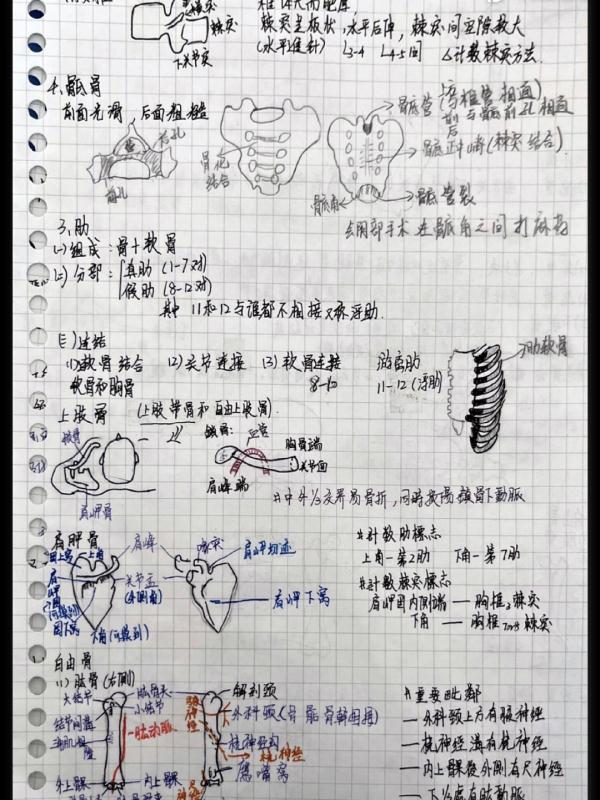 棘突
下关节突
棘突呈板状,水平后阵,棘突间空隙较大
(水平进针) L3-4 L4-5间 △计数棘突方法.
4.骶骨
前面光滑 后面粗糙
后孔
前孔
骨化
结合
骶管(与椎管相通)
前后与骶前孔相通
骶正中嵴(棘突结合)
骶角
骶管裂
会阴部手术在骶角之间打麻药
3.肋
(一)组成:骨+软骨
(二)分部:真肋(1-7对)
假肋(8-12对)
其中11和12与谁都不相接又称浮肋.
(三)连结
(1)软骨结合 (2)关节连接 (3)软骨连接 游离肋
软骨和胸骨 8-10 11-12(浮肋)
肋软骨
上肢骨 (上肢带骨和自由上肢骨).
锁骨
肩胛骨
锁骨:
胸骨端
关节面
肩峰端
#中外1/3交界易骨折,同时损伤锁骨下动脉
肩胛骨
冈上窝 上角
肩峰
喙突
肩胛切迹
关节盂
(外侧角)
肩胛下窝
冈下窝
下角(可摸到)
#计数肋标志
上角-第2肋 下角-第7肋
#计数棘突标志
肩胛冈内侧端—胸椎3棘突
下角—胸椎7棘突
自由骨
(1)肱骨(右侧)
大结节
肱骨头
小结节
结节间沟
肱动脉
外上髁
内上髁
腋神经
解剖颈
外科颈
桡神经沟
桡神经
鹰嘴窝
#重要毗邻
—外科颈上方有腋神经
—桡神经沟有桡神经
—内上髁后外侧有尺神经
—下1/3处有肱动脉